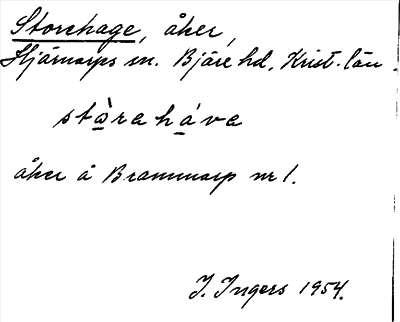 Storehage, åker,
Hjärnarps sn. Bjäre hd, Krist. län.
stàraháva
åker å Brammarp nr 1.
I. Ingers 1954.